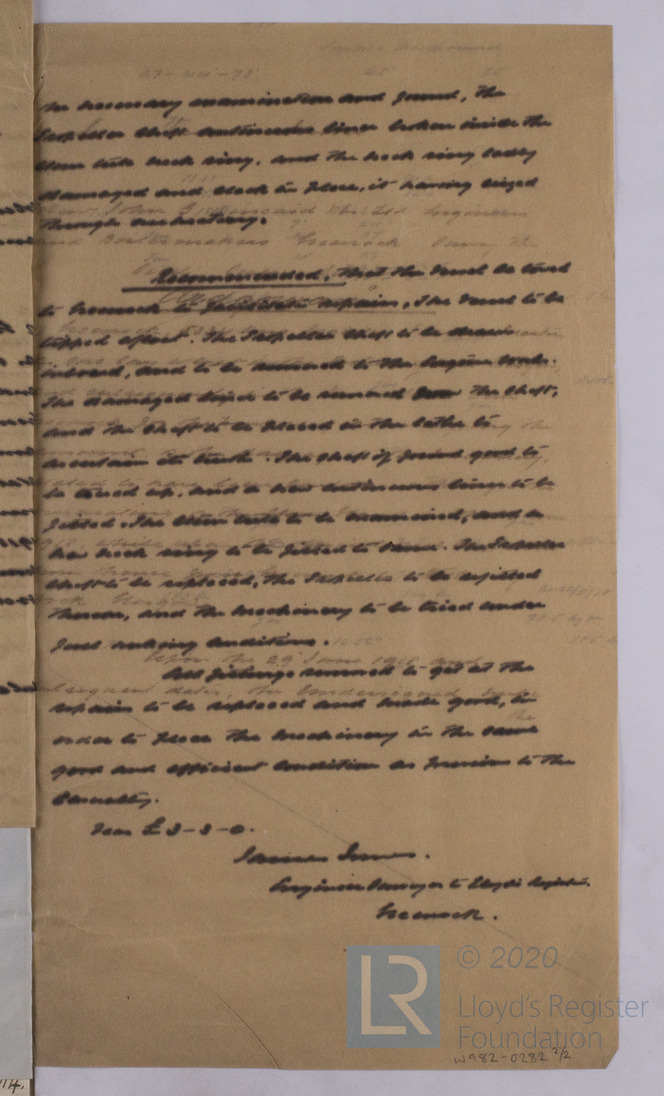 the necessary examination and found, the
Propeller Shaft continuous liner broken inside the
Stern tube neck ring, and the neck ring badly
damaged and slack in place, it having seized
through
Recommended, that the Vessel be towed
to Greenock to facilitate repairs, The Vessel to be
tipped afloat. The Propeller Shaft to be drawn
inboard, and to be removed to the Engine Works.
The damaged liner to be removed from the Shaft,
and the Shaft to be placed in the lathe to
ascertain its truth. The Shaft if found good to
be trued up, and a new continuous liner to be
fitted. The Stern tube to be examined, and a
new neck ring to be fitted to same. The Propeller
Shaft to be replaced, the Propeller to be refitted
thereon, and the Machinery to be tried under
full working conditions.
All fittings removed to get at the
repairs to be replaced and made good, in
order to place the Machinery in the same
good and efficient condition as previous to the
Casualty.
Fees £3-3-0.
James Innes.
Engineer Surveyor to Lloyd's Register.
Greenock.
LR
© 2020
Lloyd's Register
Foundation
W982-0282 2/2